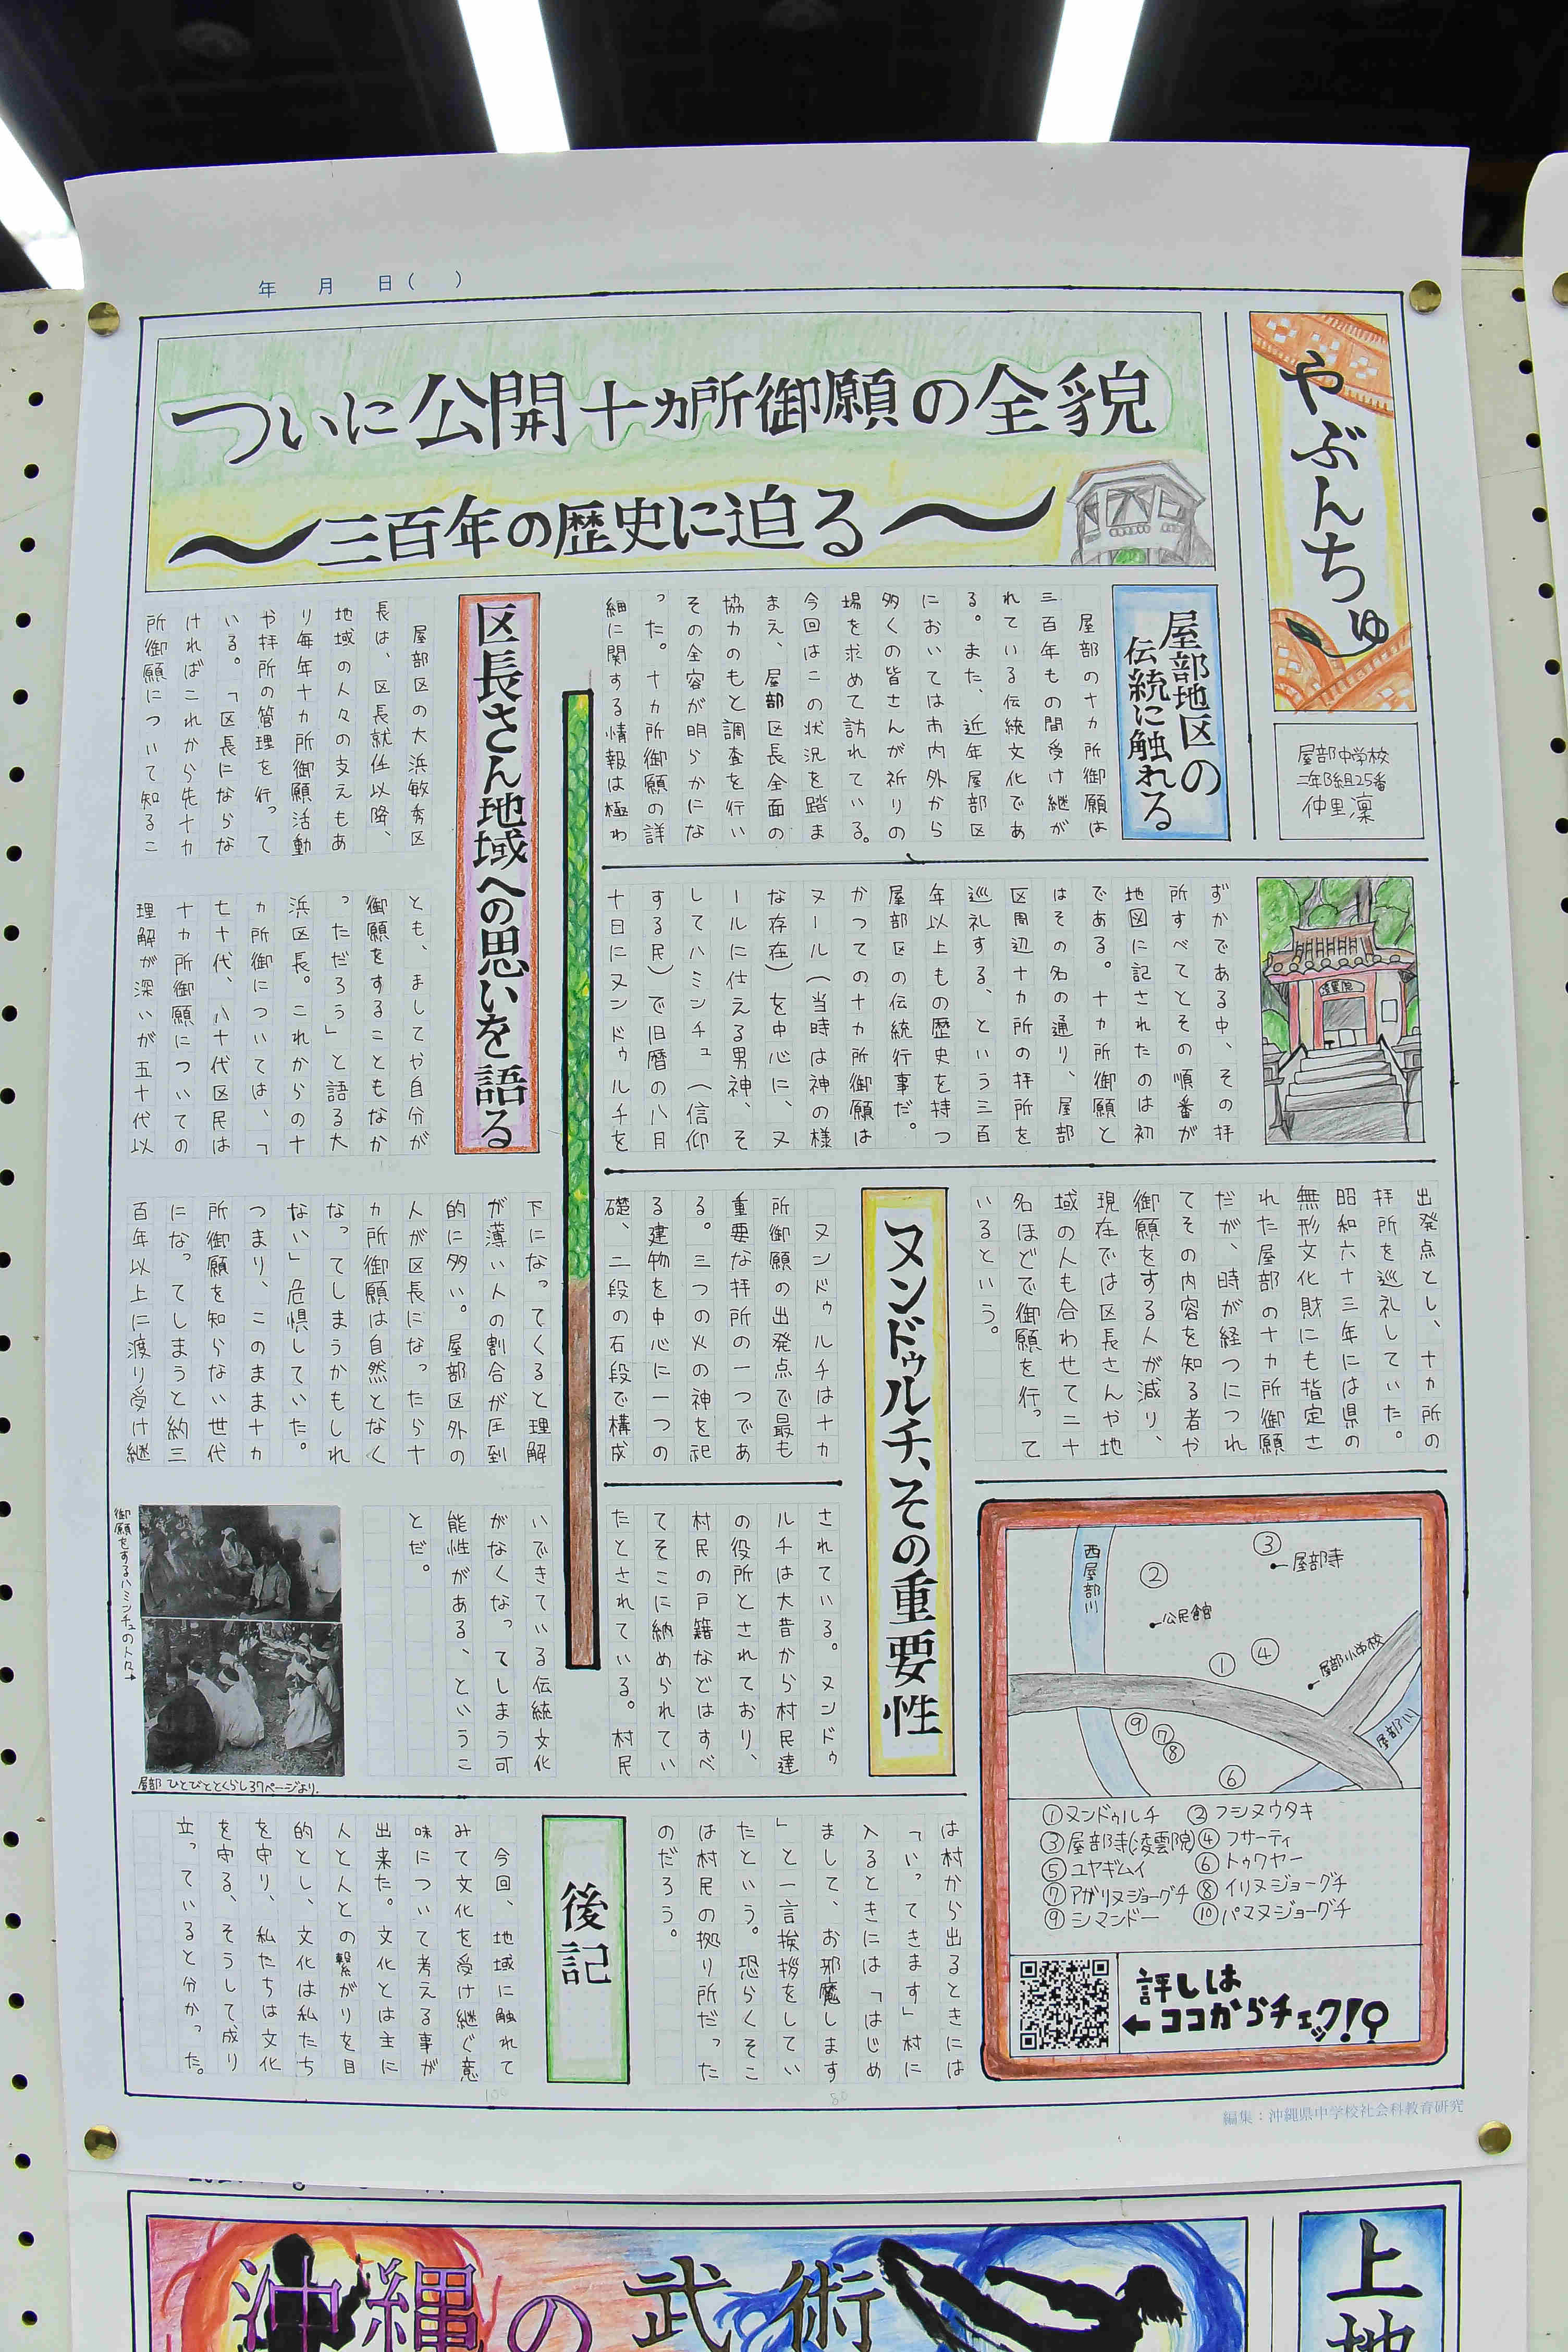 年 月 日( )
やぶんちゅ
屋部中学校
二年B組25番
仲里凛
ついに公開十ヵ所御願の全貌
〜三百年の歴史に迫る〜
屋部地区の
伝統に触れる
屋部の十カ所御願は
三百年もの間受け継が
れている伝統文化であ
る。また、近年屋部区
においては市内外から
多くの皆さんが祈りの
場を求めて訪れている。
今回はこの状況を踏ま
まえ、屋部区長全面の
協力のもと調査を行い
その全容が明らかにな
った。十カ所御願の詳
細に関する情報は極わ
ずかである中、その拝
所すべてとその順番が
地図に記されたのは初
である。十カ所御願と
はその名の通り、屋部
区周辺十カ所の拝所を
巡礼する、という三百
年以上もの歴史を持つ
屋部区の伝統行事だ。
かつての十カ所御願は
ヌール(当時は神の様
な存在)を中心に、ヌ
ールに仕える男神、そ
してハミンチュ(信仰
する民)で旧暦の八月
十日にヌンドゥルチを
出発点とし、十カ所の
拝所を巡礼していた。
昭和六十三年には県の
無形文化財にも指定さ
れた屋部の十カ所御願
だが、時が経つにつれ
てその内容を知る者や
御願をする人が減り、
現在では区長さんや地
域の人も合わせて二十
名ほどで御願を行って
いるという。
ヌンドゥルチ、その重要性
ヌンドゥルチは十カ
所御願の出発点で最も
重要な拝所の一つであ
る。三つの火の神を祀
る建物を中心に一つの
礎、二段の石段で構成
されている。ヌンドゥ
ルチは大昔から村民達
の役所とされており、
村民の戸籍などはすべ
てそこに納められてい
たとされている。村民
は村から出るときには
「いってきます」村に
入るときには「はじめ
まして、お邪魔します
」と一言挨拶をしてい
たという。恐らくそこ
は村民の拠り所だった
のだろう。
区長さん地域への思いを語る
屋部区の大浜敏秀区
長は、区長就任以降、
地域の人々の支えもあ
り毎年十カ所御願活動
や拝所の管理を行って
いる。「区長にならな
ければこれから先十カ
所御願について知るこ
とも、ましてや自分が
御願をすることもなか
っただろう」と語る大
浜区長。これからの十
カ所御については、「
七十代、八十代区民は
十カ所御願についての
理解が深いが五十代以
下になってくると理解
が薄い人の割合が圧到
的に多い。屋部区外の
人が区長になったら十
カ所御願は自然となく
なってしまうかもしれ
ない」危惧していた。
つまり、このまま十カ
所御願を知らない世代
になってしまうと約三
百年以上に渡り受け継
いできている伝統文化
がなくなってしまう可
能性がある、というこ
とだ。
御願をするハミンチュの人々→
屋部 ひとびととくらし37ページより.
後記
今回、地域に触れて
みて文化を受け継ぐ意
味について考える事が
出来た。文化とは主に
人と人との繋がりを目
的とし、文化は私たち
を守り、私たちは文化
を守る、そうして成り
立っていると分かった。
西屋部川
②
③
屋部寺
公民館
①
④
屋部小学校
屋部川
⑨
⑦
⑧
⑥
①ヌンドゥルチ ②フシヌウタキ
③屋部寺(凌雲院) ④フサーティ
⑤ユヤギムイ ⑥トゥクヤー
⑦アガリヌジョーグチ ⑧イリヌジョーグチ
⑨シマンドー ⑩パマヌジョーグチ
詳しは
←ココからチェック!
編集：沖縄県中学校社会科教育研究
沖縄の武術
上地